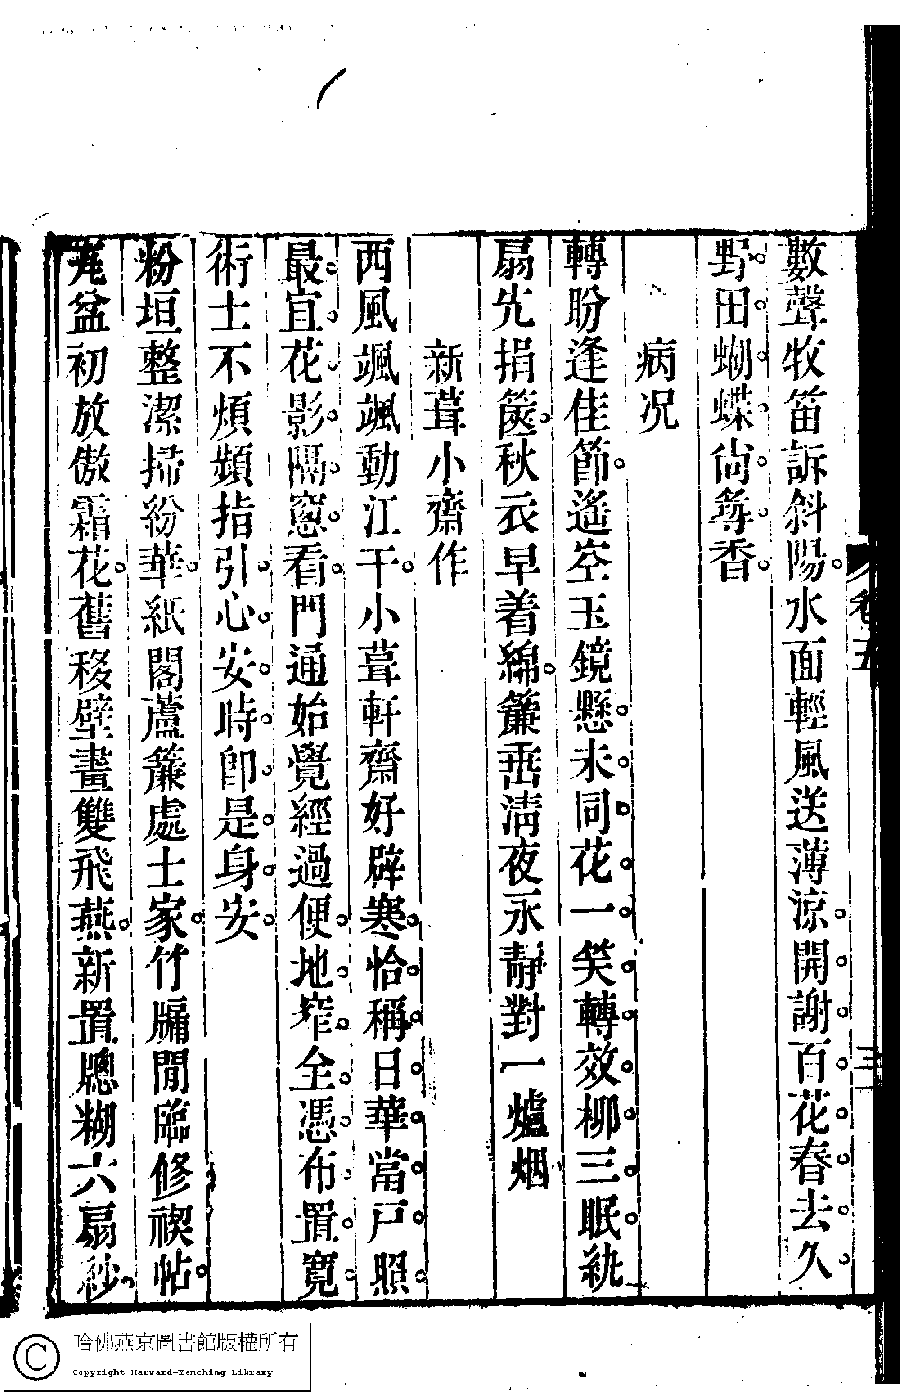 數聲牧笛訴斜陽水面輕風送薄涼開謝百花春去久
野田蝴蝶尙尋香
病况
轉盼逢佳節遙空玉鏡懸未同花一笑轉效柳三眠紈
扇先捐篋秋衣早着綿簾垂淸夜永靜對一爐烟
新葺小齋作
西風颯颯動江干小葺軒齋好辟寒恰稱日華當戶照
最宜花影隔窻看門通始覺經過便地窄全憑布置寬
術士不煩頻指引心安時卽是身安
粉垣整潔掃紛華紙閣蘆簾處士家竹牗閒臨修禊帖
瓦盆初放傲霜花舊移壁畫雙飛燕新置牎糊六扇紗
卷五
哈佛燕京圖書館版權所有
Copyright Harvard-Yenching Library